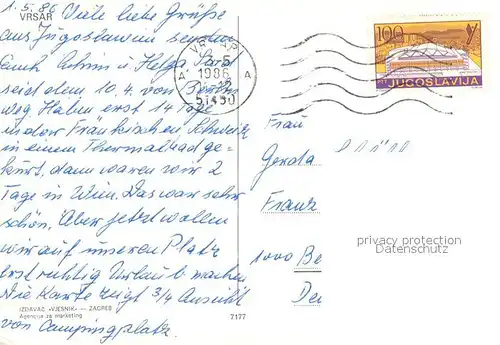 1.5.86
VRSAR
Viele liebe Grüße
aus Jugoslawien senden
Euch Achim und Helga. Sind
seit dem 10.4. von Berlin
weg. Haben erst 14 Tage
in der Fränkischen Schweiz
in einem Thermalbad ge-
kurt, dann waren wir 2
Tage in Wien. Das war sehr
schön. Aber jetzt wollen
wir auf unserem Platz
erst richtig Urlaub machen
Die Karte zeigt 3/4 Ansicht
vom Campingplatz.
IZDAVAČ «VJESNIK» — ZAGREB
Agencija za marketing
7177
1986
A A
51450
100
JUGOSLAVIJA
Frau
Gerda
Franz
1000 Be
privacy protection
Datenschutz